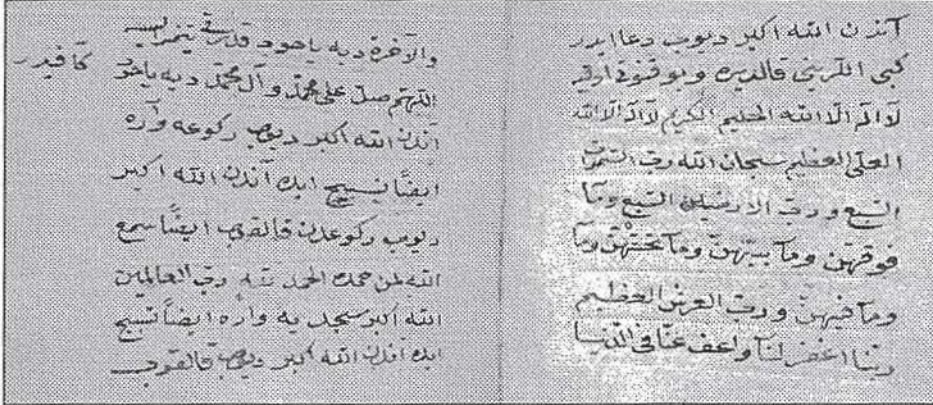 آندن الله اكبر ديوب دعا ايدر
كبى اللرينى قالديره و بو قنوتى اوقر
لآ اله الا الله الحليم الكريم لآ اله الا الله
العلى العظيم سبحان الله رب السموات
السبع و رب الارضين السبع وما
فوقهن وما بينهن وما تحتهن وما
وما فيهن و رب العرش العظيم
ربنا اغفر لنا واعف عنا فى الدنيا
والآخرة ديه ياخود يتمز ايسه
اللهم صل على محمد وآل محمد ديه ياخود كافيدر
آندن الله اكبر ديوب ركوعه واره
ايضًا تسبيح ايده آندن الله اكبر
ديوب ركوعدن قالقوب ايضًا سمع
الله لمن حمده الحمد لله رب العالمين
الله اكبر سجده يه واره ايضاً تسبيح
ايده آندن الله اكبر ديوب قالقوب